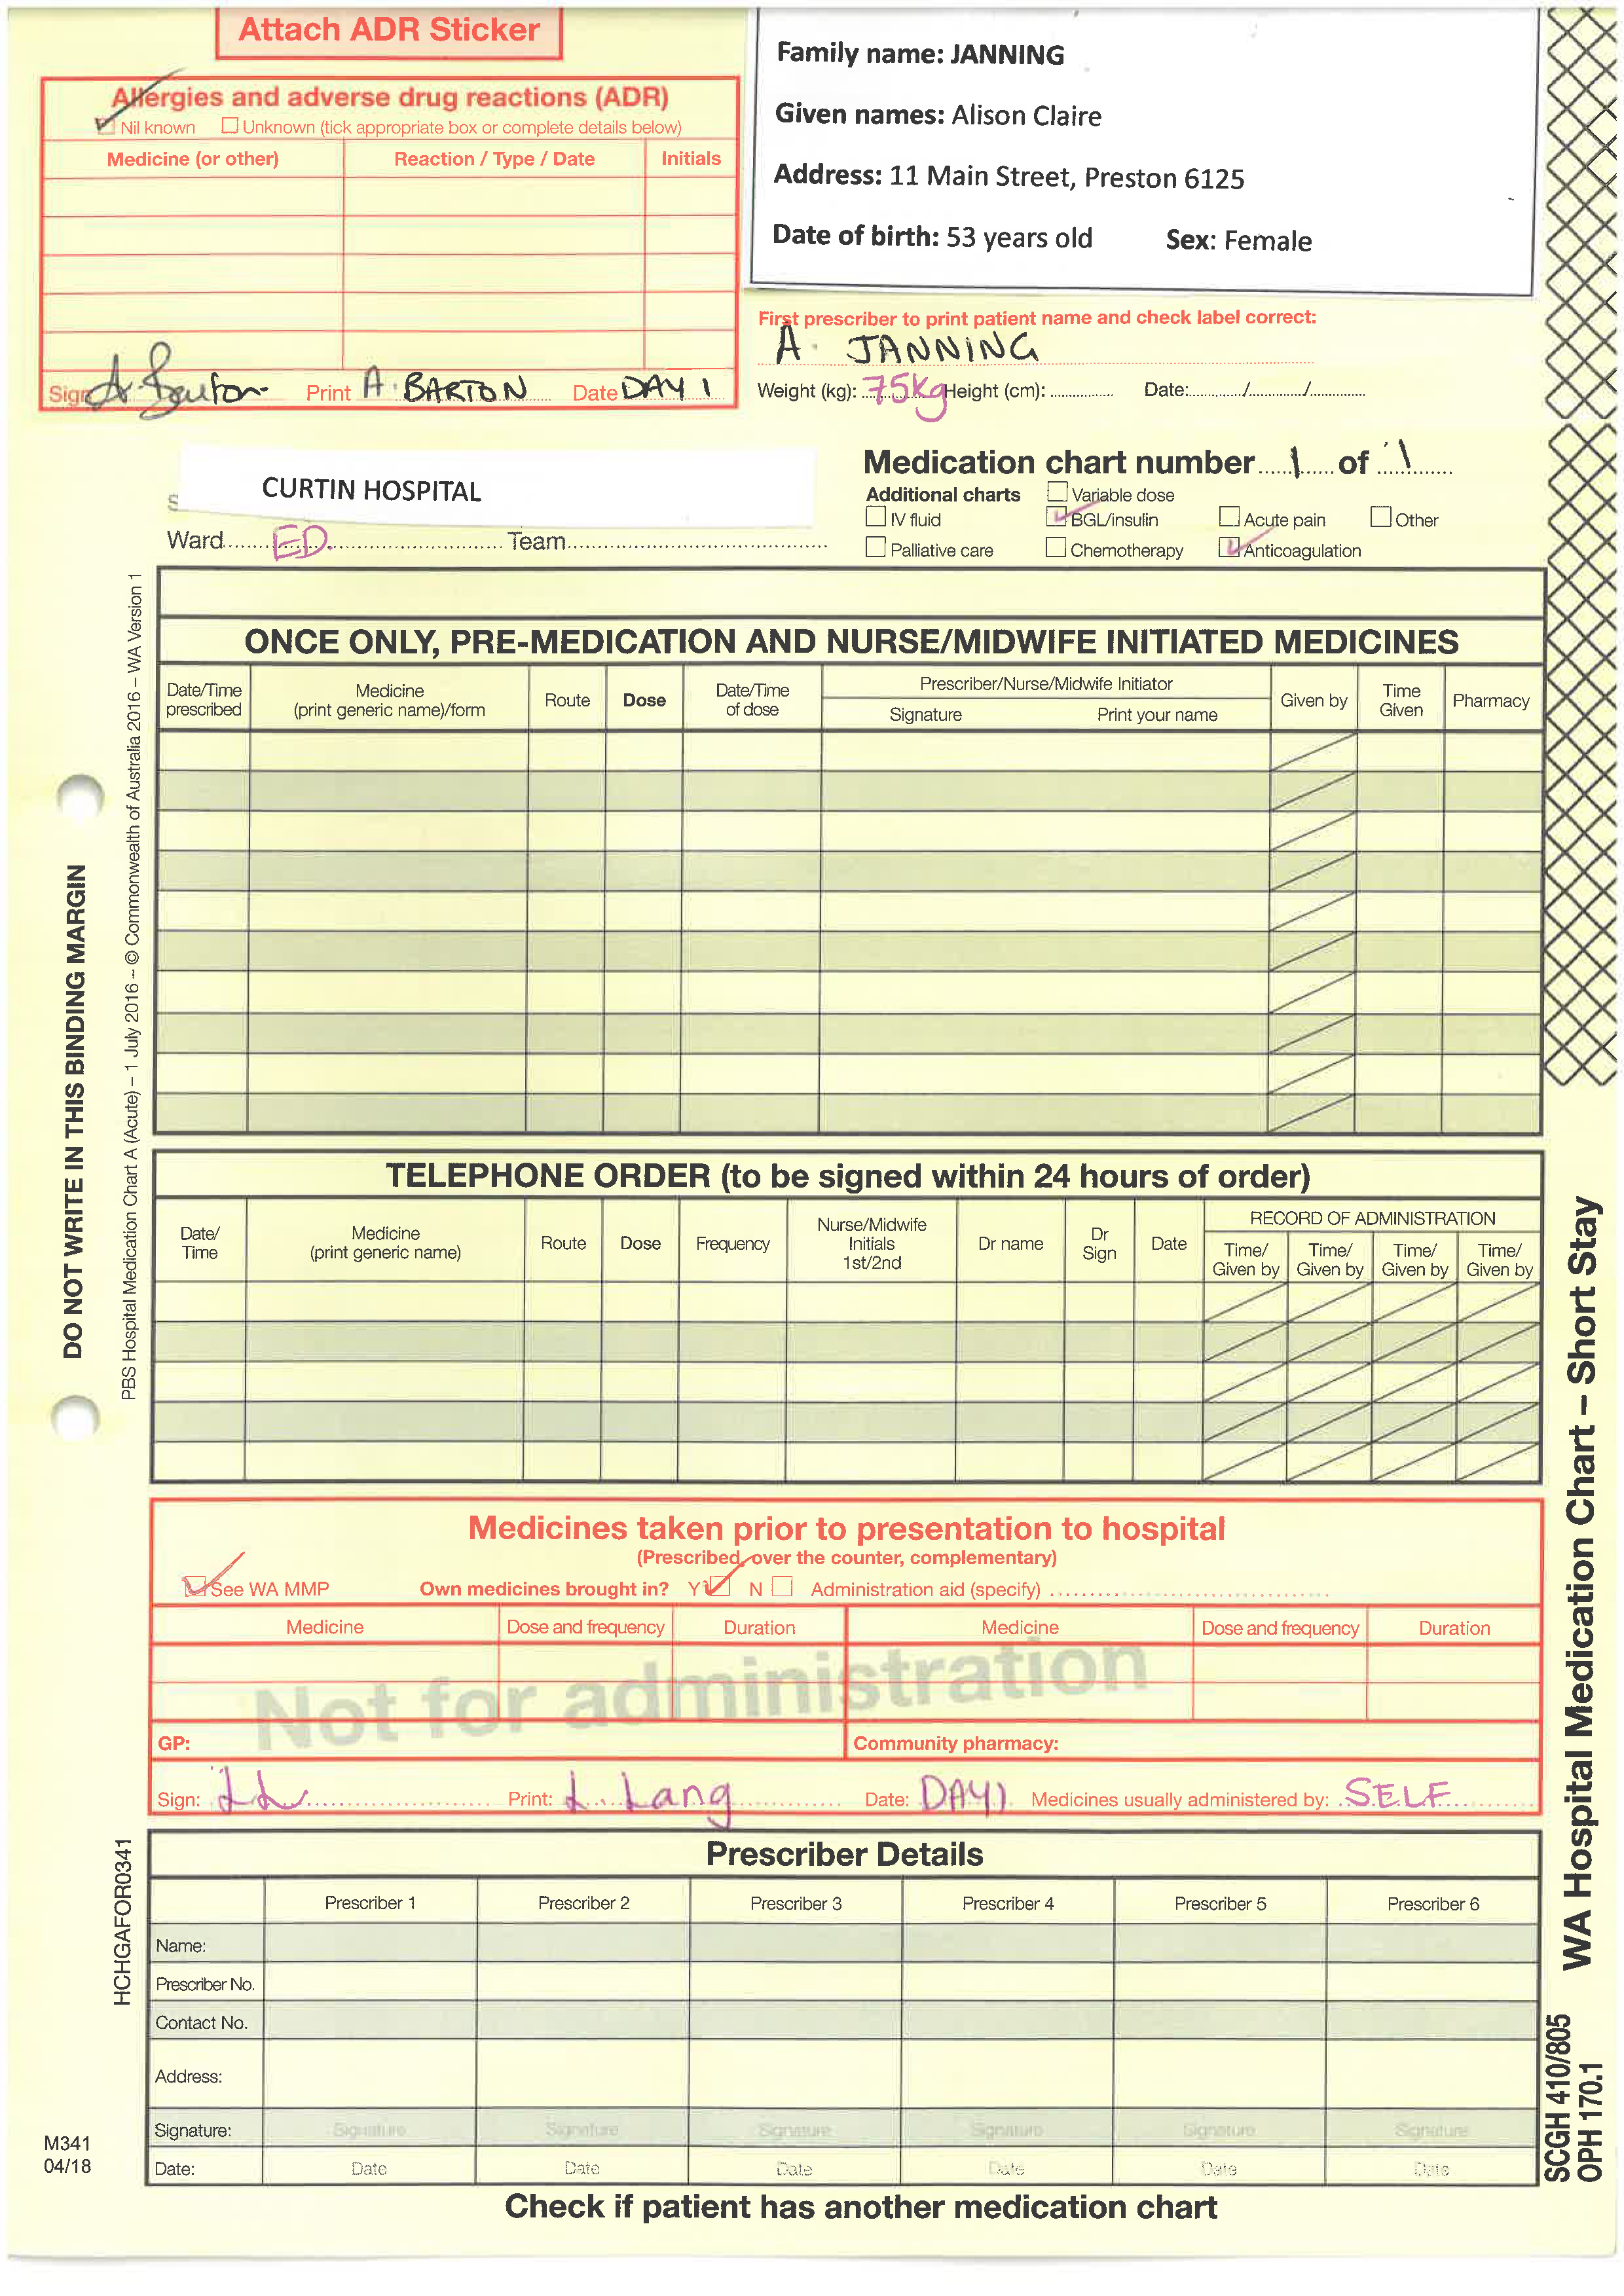 Attach ADR Sticker
Allergies and adverse drug reactions (ADR)
Nil known Unknown (tick appropriate box or complete details below)
Medicine (or other) Reaction / Type / Date Initials
Sign A. Barton Print A. BARTON Date DAY 1
Family name: JANNING
Given names: Alison Claire
Address: 11 Main Street, Preston 6125
Date of birth: 53 years old Sex: Female
First prescriber to print patient name and check label correct:
A. JANNING
Weight (kg): 75kg Height (cm): Date: / /
CURTIN HOSPITAL
Ward ED. Team
Medication chart number 1 of 1
Additional charts Variable dose
IV fluid BGL/insulin Acute pain Other
Palliative care Chemotherapy Anticoagulation
ONCE ONLY, PRE-MEDICATION AND NURSE/MIDWIFE INITIATED MEDICINES
Date/Time prescribed Medicine (print generic name)/form Route Dose Date/Time of dose Prescriber/Nurse/Midwife Initiator Signature Print your name Given by Time Given Pharmacy
TELEPHONE ORDER (to be signed within 24 hours of order)
Date/ Time Medicine (print generic name) Route Dose Frequency Nurse/Midwife Initials 1st/2nd Dr name Dr Sign Date RECORD OF ADMINISTRATION
Time/ Given by Time/ Given by Time/ Given by Time/ Given by
Medicines taken prior to presentation to hospital
(Prescribed, over the counter, complementary)
See WA MMP Own medicines brought in? Y N Administration aid (specify)
Medicine Dose and frequency Duration Medicine Dose and frequency Duration
Not for administration
GP: Community pharmacy:
Sign: LL Print: L. Lang Date: DAY 1 Medicines usually administered by: SELF
Prescriber Details
Prescriber 1 Prescriber 2 Prescriber 3 Prescriber 4 Prescriber 5 Prescriber 6
Name:
Prescriber No.
Contact No.
Address:
Signature: Signature Signature Signature Signature Signature Signature
Date: Date Date Date Date Date Date
Check if patient has another medication chart
DO NOT WRITE IN THIS BINDING MARGIN
PBS Hospital Medication Chart A (Acute) – 1 July 2016 – © Commonwealth of Australia 2016 – WA Version 1
HCHGAFOR0341
M341
04/18
WA Hospital Medication Chart – Short Stay
SCGH 410/805
OPH 170.1